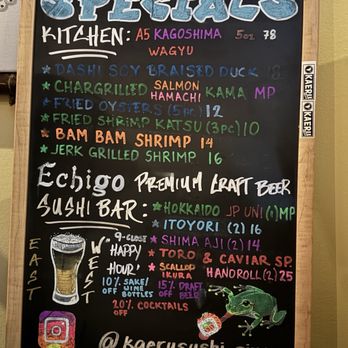 SPECIALS
KITCHEN: A5 KAGOSHIMA 5oz. 78
WAGYU
★ DASHI SOY BRAISED DUCK 18
★ CHARGRILLED SALMON HAMACHI KAMA MP
★ FRIED OYSTERS (5pc) 12
★ FRIED SHRIMP KATSU (3pc) 10
★ BAM BAM SHRIMP 14
★ JERK GRILLED SHRIMP 16
Echigo PREMIUM CRAFT BEER
SUSHI BAR: ★ HOKKAIDO JP UNI (1) MP
★ ITOYORI (2) 16
★ SHIMA AJI (2) 14
★ TORO & CAVIAR SP.
★ SCALLOP IKURA HANDROLL (2) 25
EAST
WEST
9-CLOSE
"HAPPY
HOUR"
10% SAKE/
OFF WINE
BOTTLES
15% DRAFT
OFF BEER
20% COCKTAILS
OFF
KAERU
KAERU